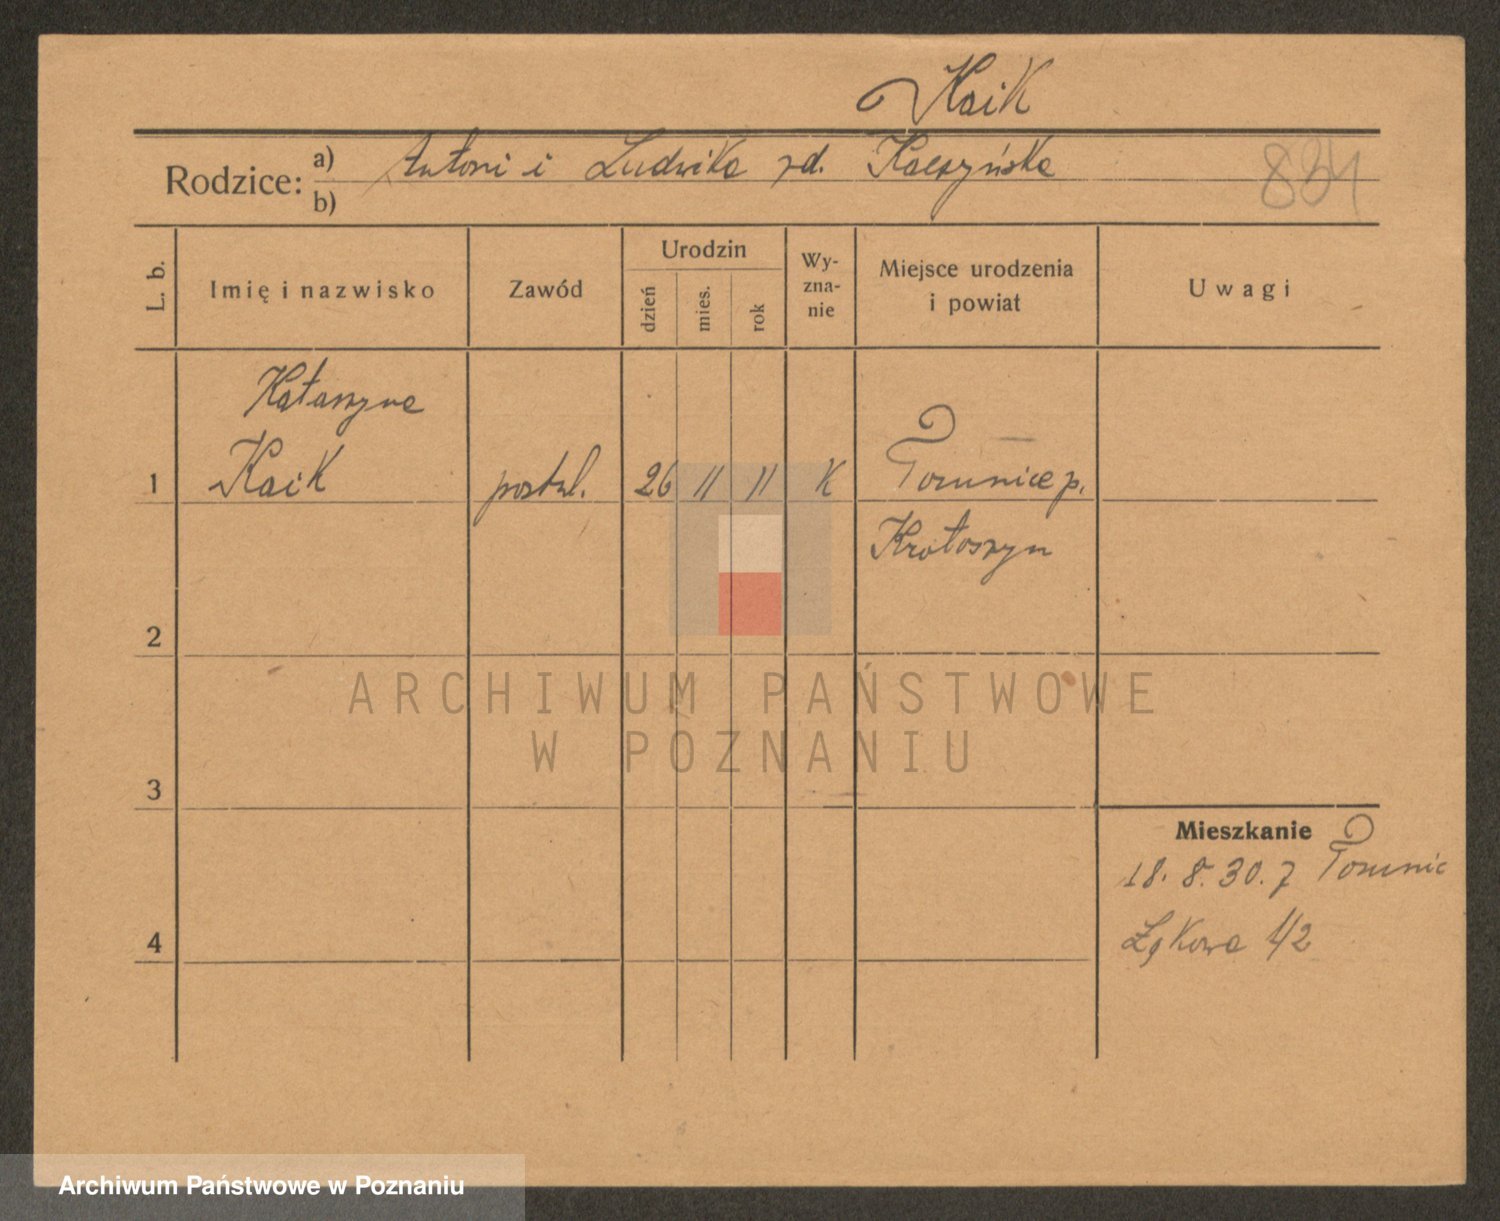 Kaik
Rodzice: a) Antoni i Ludwika zd. Kaczyńska
b)
834
L. b. Imię i nazwisko Zawód Urodzin dzień mies. rok Wyznanie Miejsce urodzenia i powiat Uwagi
Katarzyna
1 Kaik postul. 26 11 11 K Tomnice p.
Krotoszyn
2
ARCHIWUM PAŃSTWOWE
W POZNANIU
3
Mieszkanie
18. 8. 30. z Tomnic
4 Łąkowa 1/2
Archiwum Państwowe w Poznaniu